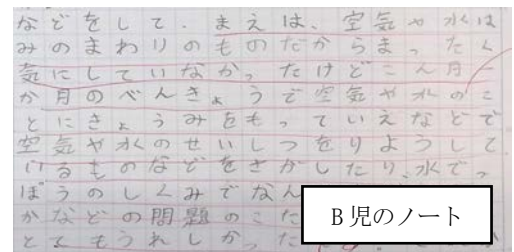 などをして、まえは、空気や水は
みのまわりのものだからまったく
気にしていなかったけどこん月
か月のべんきょうで空気や水のこ
とにきょうみをもっていえなどで
空気や水のせいしつをりようして
けるものなどをさがしたり、水でっ
ぽうのしくみでなん
かなどの問題のこた
とてもうれしかった
B児のノート